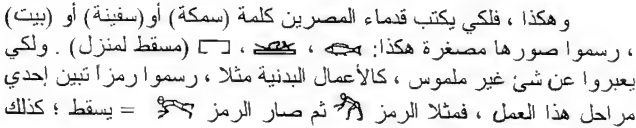 وهكذا ، فلكي يكتب قدماء المصرين كلمة (سمكة) أو (سفينة) أو (بيت)
، رسموا صورها مصغرة هكذا: ، ، (مسقط لمنزل) . ولكي
يعبروا عن شئ غير ملموس ، كالأعمال البدنية مثلا ، رسموا رمزاً تبين إحدي
مراحل هذا العمل ، فمثلا الرمز ثم صار الرمز = يسقط ؛ كذلك